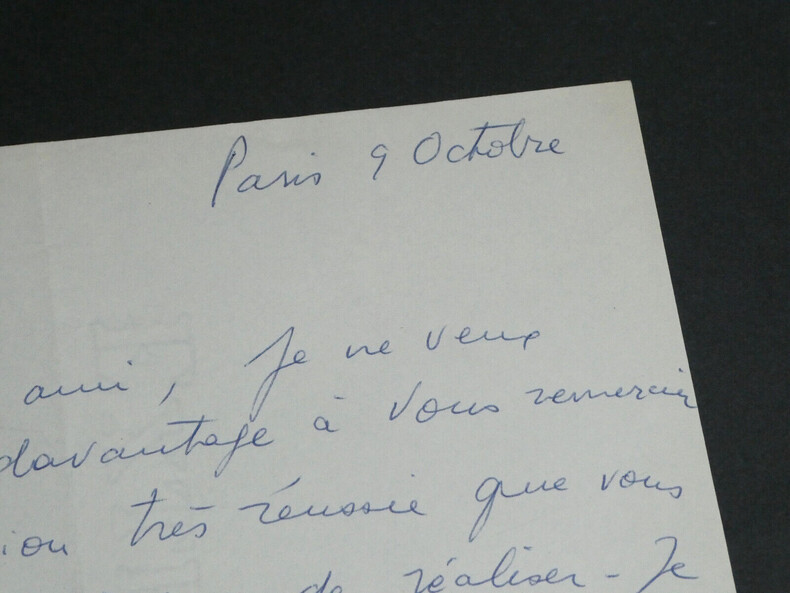 Paris 9 Octobre
ami, Je ne veux
davantage à vous remercier
ion très réussie que vous
de réaliser - Je